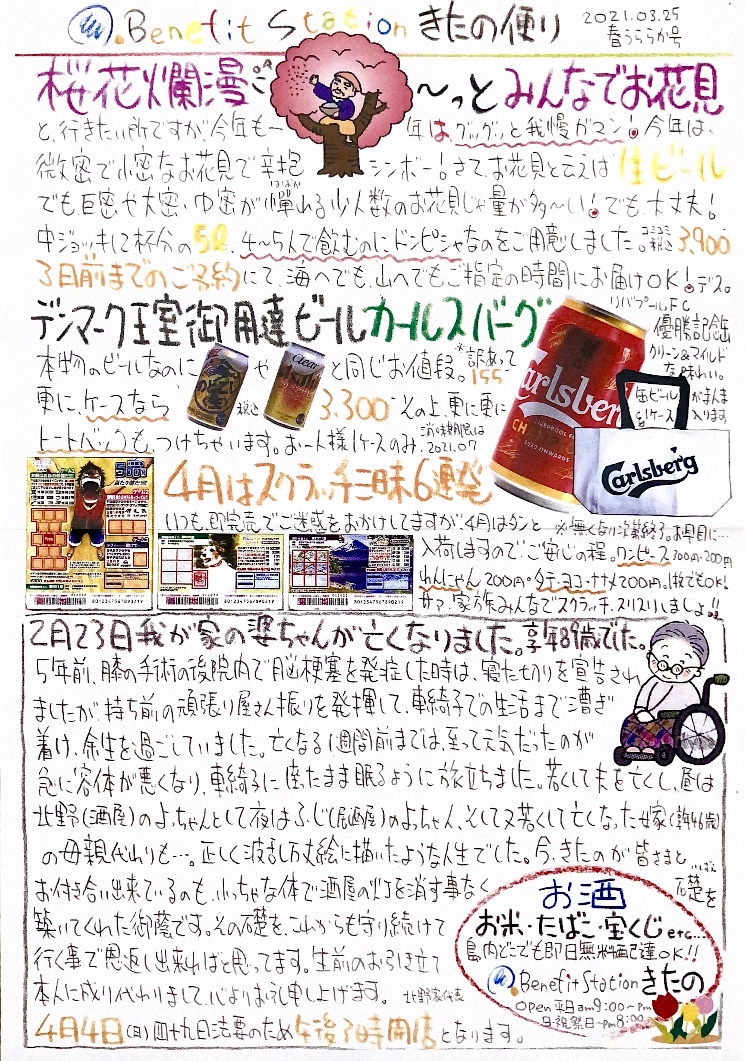 Benefit Station きたの便り
2021.03.25
春うららか号
桜花爛漫で〜っとみんなでお花見
と、行きたい所ですが、今年も一年は、グッグッと我慢がマン！今年は、
微密で小密なお花見で辛抱シンボー！さて、お花見と云えば生ビール
でも、巨密や大密、中密が憚れる少人数のお花見じゃ量が多〜い！でも、大丈夫！
中ジョッキ12杯分の5ℓ、4〜5人で飲むのにドンピシャなのをご用意しました。税込3,900
3日前までのご予約にて、海へでも、山へでもご指定の時間にお届けOK！デス。
デンマーク王室御用達ビールカールスバーグ
リバプールFC
優勝記念缶
クリーン&マイルド
な味わい。
本物のビールなのにや と同じお値段。※訳あって
155
更に、ケースなら 税込3,300 その上、更に更に
トートバックも、つけちゃいます。お一人様1ケースのみ。
消味期限は
2021.07
缶ビール
1ケース
がまんま
入ります
Carlsberg
Carlsberg
4月はスクラッチ三昧6連発
いつも、即完売でご迷惑をおかけしてますが、4月はタンと
※無くなり次第終了。お早目に…
入荷しますのでご安心の程。ワンピース300円・200円
わんにゃん200円・タテ・ヨコ・ナナメ200円。1枚でもOK！
サァ、家族みんなでスクラッチ、スリスリしましょ!!
2月23日我が家の婆ちゃんが亡くなりました。享年81歳でした。
5年前、膝の手術の後院内で脳梗塞を発症した時は、寝たきりを宣告され
ましたが、持ち前の頑張り屋さん振りを発揮して、車椅子での生活まで漕ぎ
着け、余生を過ごしていました。亡くなる1週間前までは、至って元気だったのが
急に容体が悪くなり、車椅子に座たまま眠るように旅立ちました。若くして夫を亡くし、昼は
北野(酒屋)のよっちゃんとして夜はふじ(居酒屋)のよっちゃん、そして又若くして亡くなった嫁(享年46歳)
の母親代わりも…。正しく波乱万丈絵に描いたような人生でした。今、きたのが皆さまと
お付き合い出来ているのも、小っちゃな体で酒屋の灯を消す事なく礎を
築いてくれた御蔭です。その礎を、これからも守り続けて
行く事で恩返し出来ればと思ってます。生前のお引き立て
本人に成り代わりまして、心よりお礼申し上げます。北野家代表
4月4日(日)四十九日法要のため午後3時開店となります。
お酒
お米・たばこ・宝くじetc…
島内どこでも即日無料配達OK!!
Benefit Station きたの
open 平日am9:00〜pm
日・祝祭日〜pm8:00